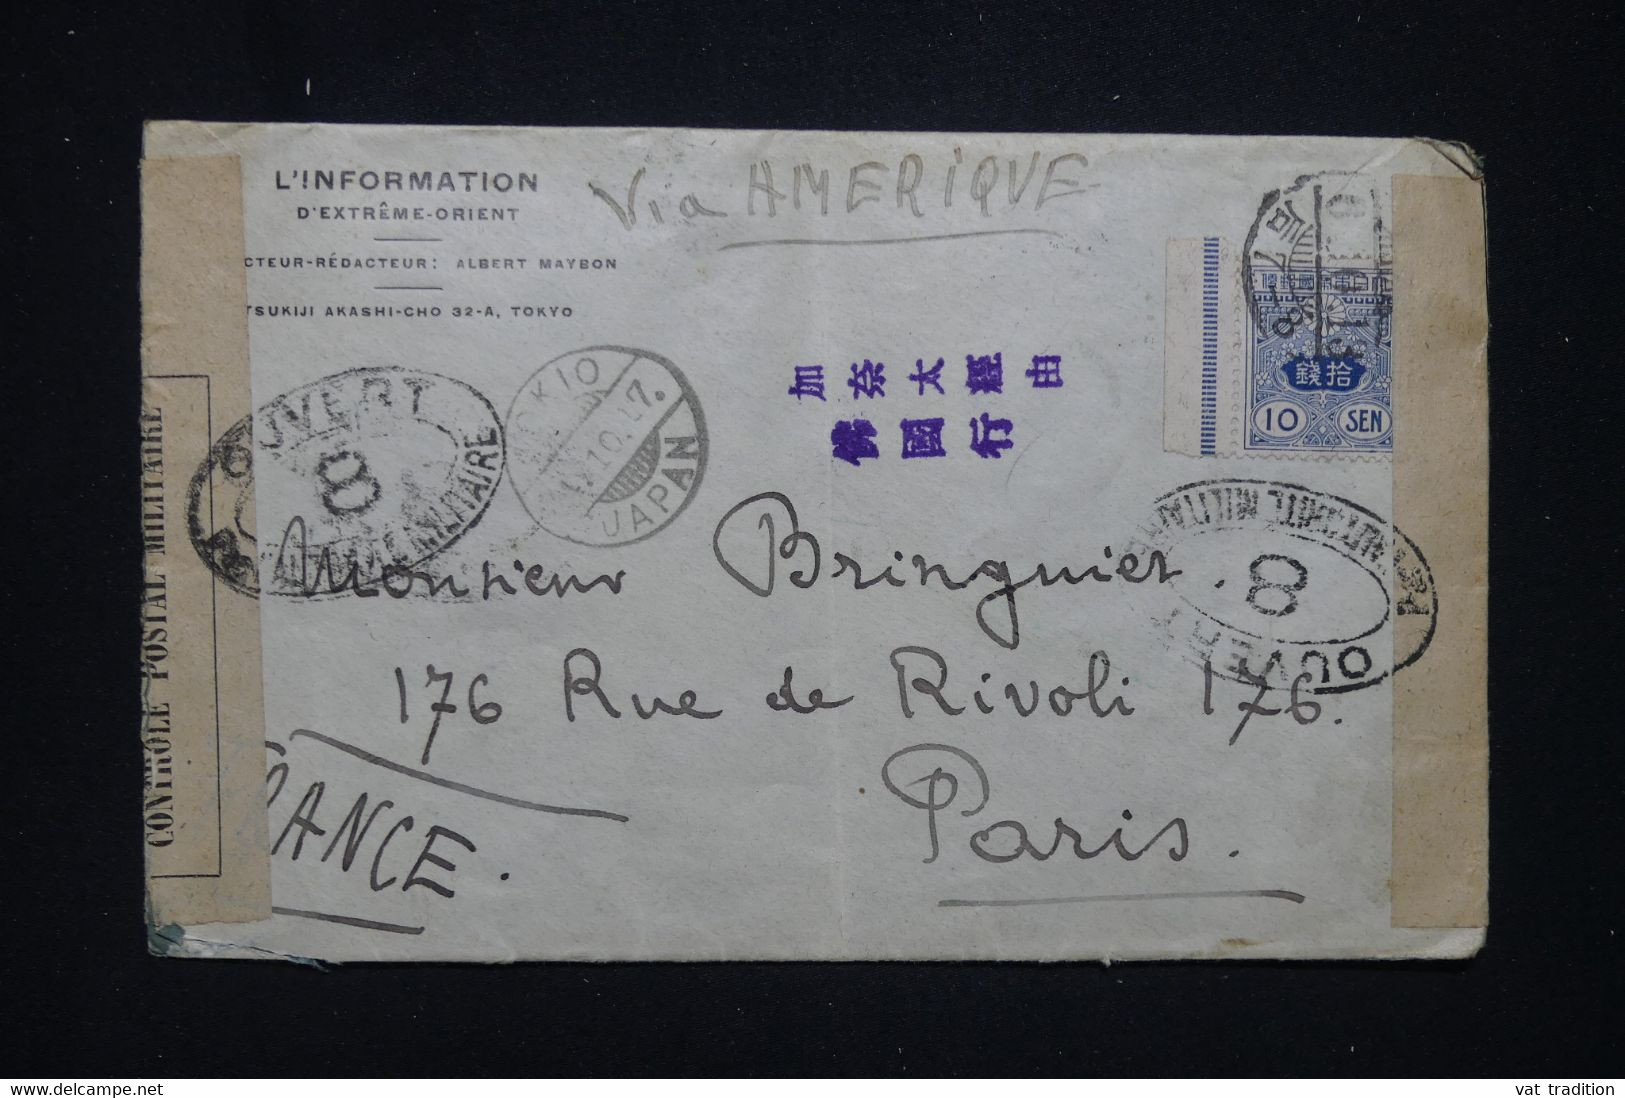 L'INFORMATION
D'EXTRÊME-ORIENT
CTEUR-RÉDACTEUR: ALBERT MAYBON
TSUKIJI AKASHI-CHO 32-A, TOKYO
Via AMERIQUE
加奈太經由
佛國行
TOKIO
JAPAN
大日本帝國郵便
拾錢
10 SEN
OUVERT
8
MILITAIRE
OUVERT
8
MILITAIRE
CONTRÔLE POSTAL MILITAIRE
Monsieur Bringuier.
176 Rue de Rivoli 176.
Paris.
RANCE.
delcampe.net
vat tradition